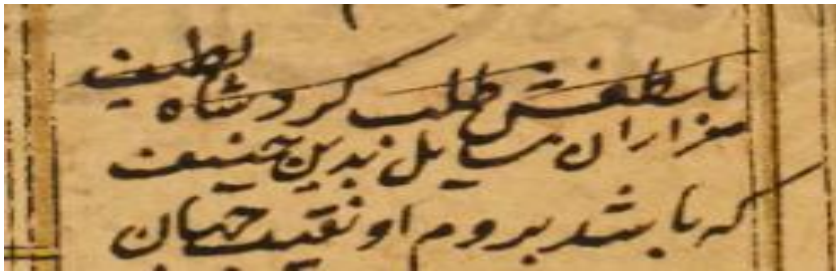 بلطفش طلب کرد شاه لطیف
هزاران مسایل بدین حنیف
که باشد بروم او نقیب جهان